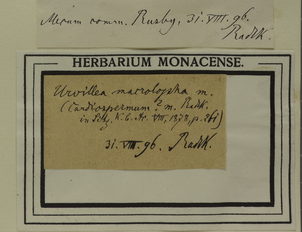 Merum comm. Rusby, 31. VIII. 96.
Radlk.
HERBARIUM MONACENSE.
Urvillea macrolopha m.
(Cardiospermum ? m. Radlk.
in Sitz. K. b. Ak. VIII, 1878, p. 261)
31. VIII. 96. Radlk.